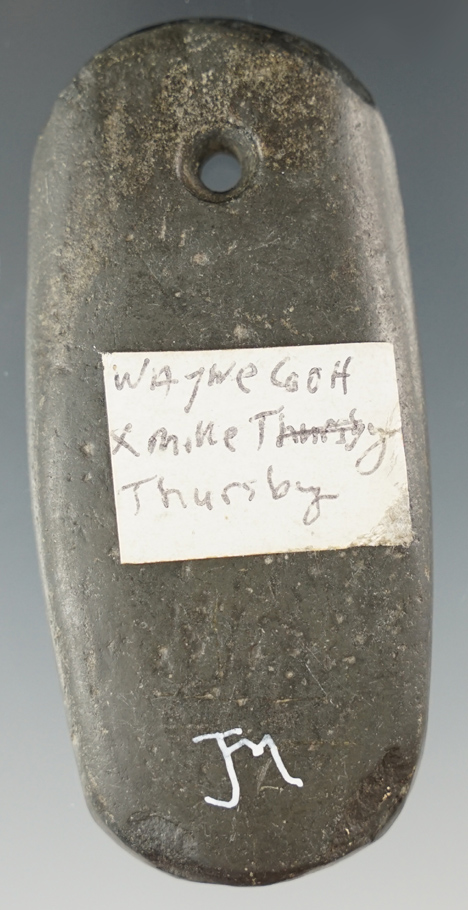 WAyNe CoH
X Mike Thursby
Thursby
JM